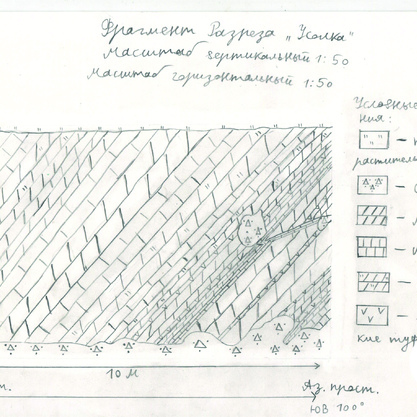 Фрагмент Разреза „Усолка"
Масштаб вертикальный 1:50
Масштаб горизонтальный 1:50
Условные
ния:
растительн
кие туф
10 м
т.
Аз. прост.
ЮВ 100°